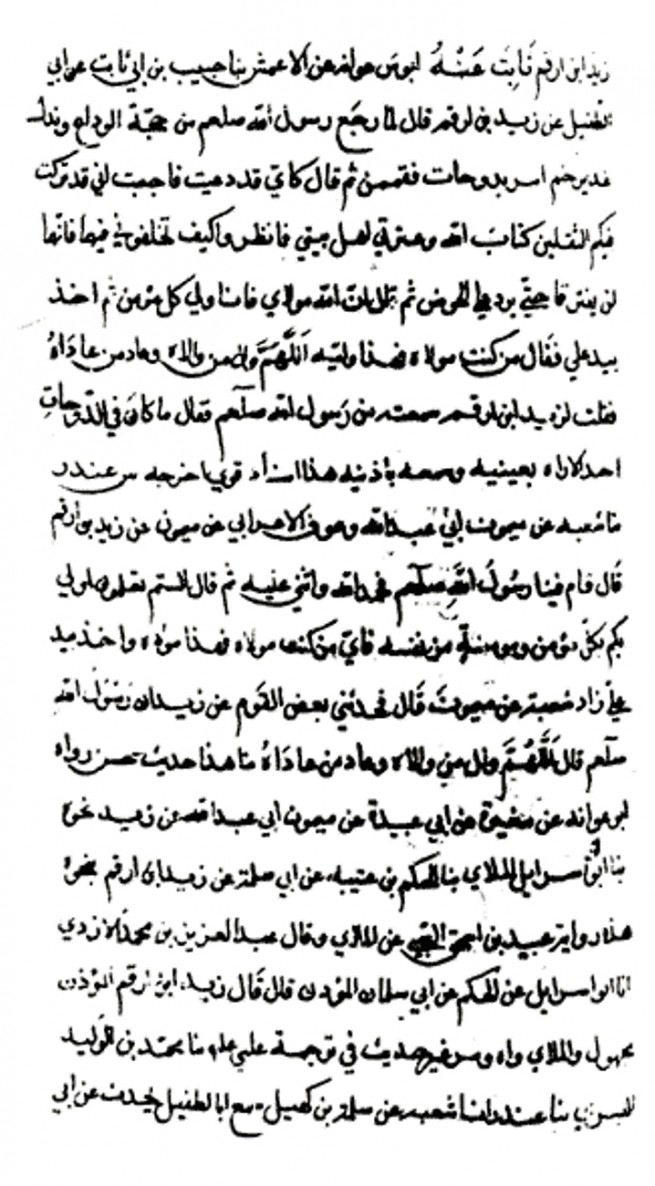 زيد ابن ارقم ثَابِتَ عَنْهُ ابو عوانه عن الاعمش بنا حبيب بن ابي ثابت عن ابي
الطفيل عن زيد بن ارقم قال لما رجع رسول الله صلعم من حجة الوداع ونزل
غدير خم امر بدوحات فقممن ثم قال كاني قد دعيت فاجبت اني قد تركت
فيكم الثقلين كتاب الله وعترتي اهل بيتي فانظروا كيف تخلفوني فيهما فانهما
لن يفترقا حتى يردا علي الحوض ثم قال ان الله مولاي وانا ولي كل مؤمن ثم اخذ
بيد علي فقال من كنت مولاه فهذا وليه اَللَّهُمَّ وال من والاه وعاد من عاداهُ
فقلت لزيد ابن ارقم سمعته من رَسول الله صلعم فقال ما كان في الدّوحاتِ
احد الا راه بعينيه وسمعه باذنيه هذا اسناد قوي اخرجه س عندر
نا شعبه عن ميمون ابي عبد الله وعوف الاعرابي عن ميمون عن زيد بن ارقم
قَال قام فينا رسُولُ اللهِ صلعم فحمد الله واثنى عليه ثم قال الستم تعلمون اولي
بكم بكل مؤمن ومومنة من نفسه قال من كنت مولاه فهذا مولاه واخذ بيد
علي زاد شعبة عن ميمون قَال فحدثني بعض القَوم عن زيد ان رَسُول الله
صلعم قال اَللَّهُمَّ وال من والاه وعاد من عاداهُ هذا حديث حسن رواه
ابو عوانه عن مغيرة عن ابي عبيدة عن ميمون ابي عبد الله عن زيد نحوه
بنا ابو اسرايل الملاي بنا الحكم بن عتيبه عن ابي سلمة عن زيد ابن ارقم نحوه
هذا رواية عبيد بن اسحق عن الملاي وقال عبد العزيز بن محمد الازدي
انا ابو اسرايل عن الحكم عن ابي سلمان المؤذن قال قَال زيد ابن ارقم المؤذن
مجهول والملاي واه ومر غير حديث في ترجمة علي نا محمد بن الوليد
البسري بنا عندر نا شعبه عن سلمة بن كهيل سمع ابا الطفيل يحدث عن ابي